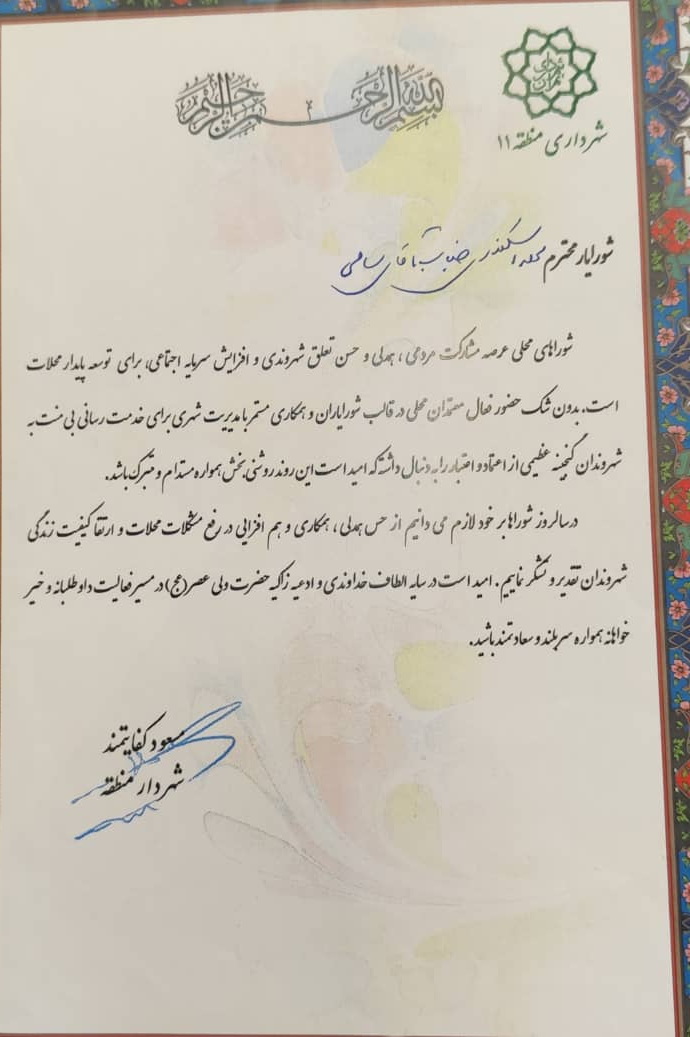 بسم الله الرحمن الرحیم
شهرداری تهران
شهرداری منطقه ۱۱
شورایار محترم محله اسکندری جناب آقای
شوراهای محلی عرصه مشارکت مردمی ، همدلی و حسن تعلق شهروندی و افزایش سرمایه اجتماعی، برای توسعه پایدار محلات
است. بدون شک حضور فعال معتمدان محلی در قالب شورایاران و همکاری مستمر با مدیریت شهری برای خدمت رسانی بی منت به
شهروندان گنجینه عظیمی از اعتماد و اعتبار را به دنبال داشته که امید است این روند روشنی بخش همواره مستدام و متبرک باشد.
در سالروز شوراها بر خود لازم می دانیم از حس همدلی ، همکاری و هم افزایی در رفع مشکلات محلات و ارتقا کیفیت زندگی
شهروندان تقدیر و تشکر نماییم . امید است در سایه الطاف خداوندی و ادعیه زاکیه حضرت ولی عصر (عج) در مسیر فعالیت داوطلبانه و خیر
خواهانه همواره سربلند و سعادتمند باشید.
مسعود کفایتمند
شهردار منطقه